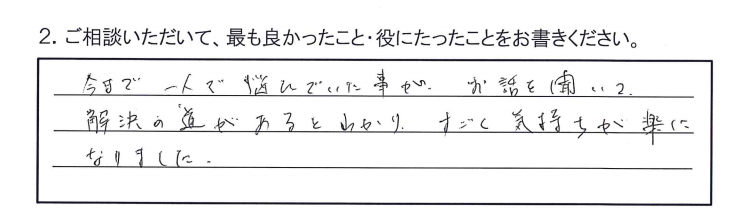 2. ご相談いただいて、最も良かったこと・役にたったことをお書きください。
今日で一人で悩んでいた事が、お話を聞いて、
解決の道があるとわかり、すごく気持ちが楽に
なりました。